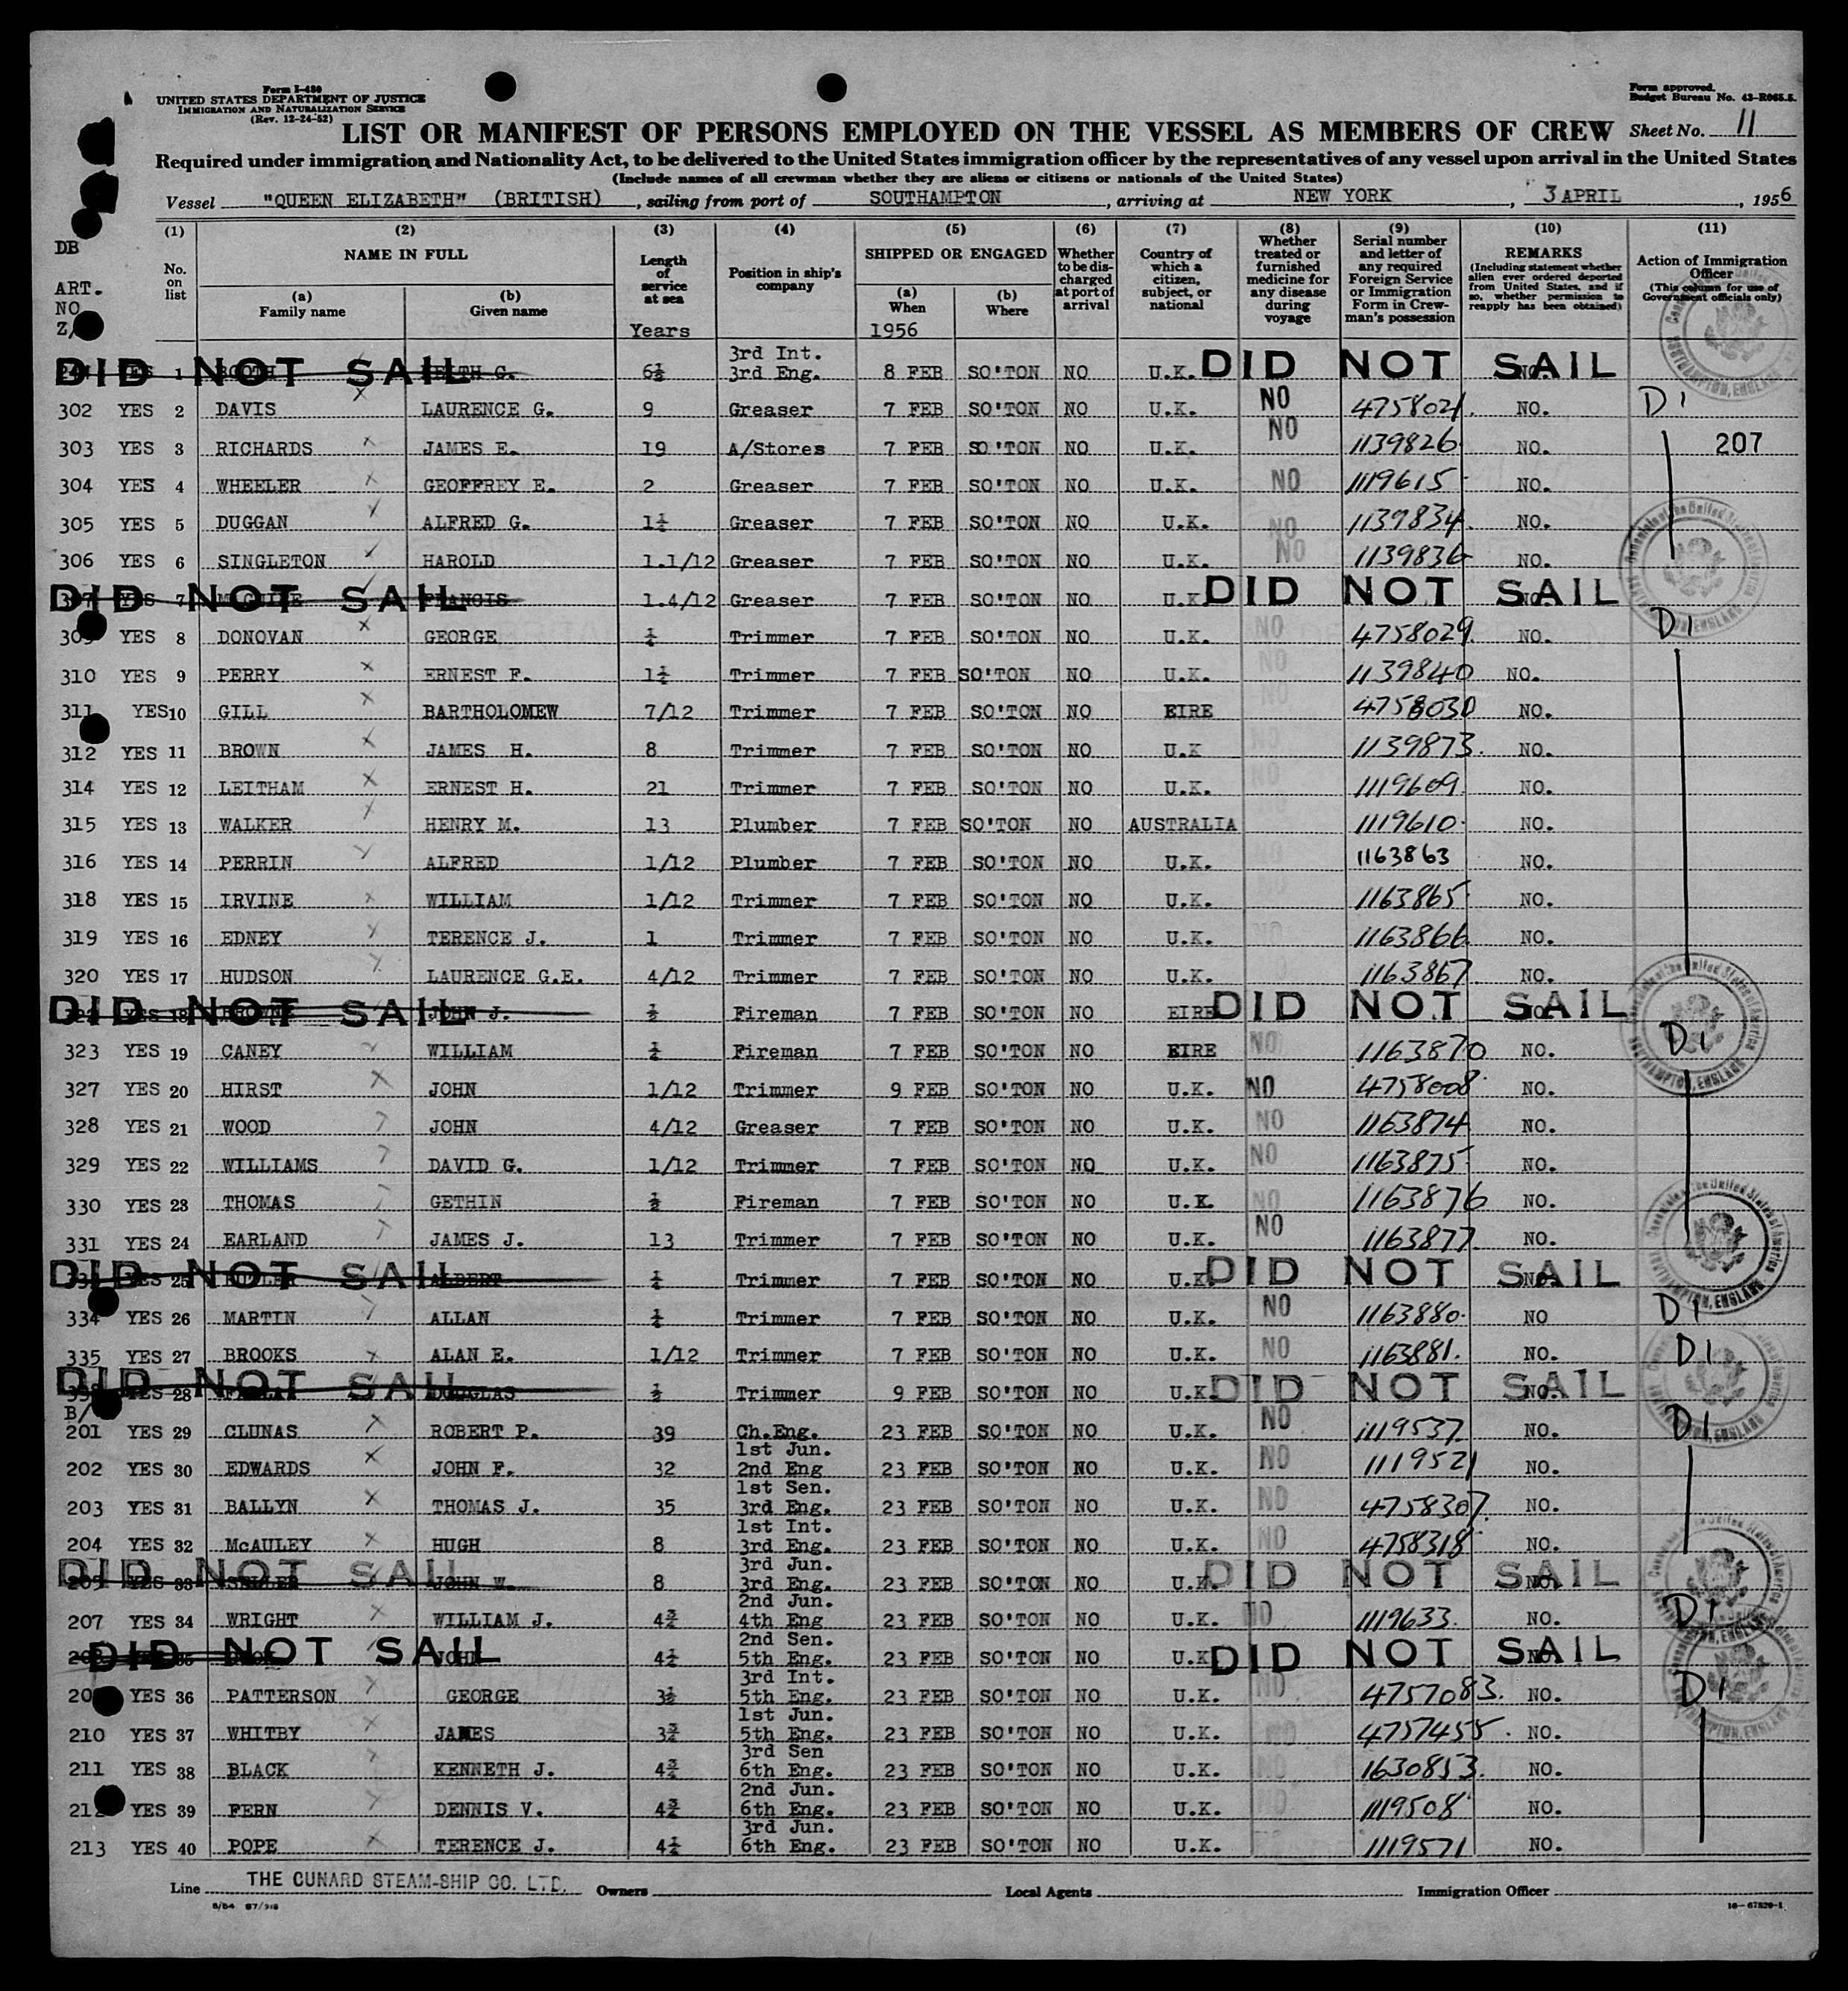 Form I-480
UNITED STATES DEPARTMENT OF JUSTICE
IMMIGRATION AND NATURALIZATION SERVICE
(Rev. 12-24-52)
Form approved.
Budget Bureau No. 43-R065.5.
LIST OR MANIFEST OF PERSONS EMPLOYED ON THE VESSEL AS MEMBERS OF CREW Sheet No. 11
Required under immigration and Nationality Act, to be delivered to the United States immigration officer by the representatives of any vessel upon arrival in the United States
(Include names of all crewman whether they are aliens or citizens or nationals of the United States)
Vessel "QUEEN ELIZABETH" (BRITISH), sailing from port of SOUTHAMPTON, arriving at NEW YORK, 3 APRIL, 1956
DB
ART.
NO
Z/
(1) No. on list
(2) NAME IN FULL
(a) Family name
(b) Given name
(3) Length of service at sea
Years
(4) Position in ship's company
(5) SHIPPED OR ENGAGED
(a) When
1956
(b) Where
(6) Whether to be discharged at port of arrival
(7) Country of which a citizen, subject, or national
(8) Whether treated or furnished medicine for any disease during voyage
(9) Serial number and letter of any required Foreign Service or Immigration Form in Crewman's possession
(10) REMARKS (Including statement whether alien ever ordered deported from United States, and if so, whether permission to reapply has been obtained)
(11) Action of Immigration Officer (This column for use of Government officials only)
DID NOT SAIL 1 G. 6½ 3rd Int. 3rd Eng. 8 FEB SO'TON NO U.K. DID NOT SAIL
302 YES 2 DAVIS LAURENCE G. 9 Greaser 7 FEB SO'TON NO U.K. NO 4758021. NO. D1
303 YES 3 RICHARDS JAMES E. 19 A/Stores 7 FEB SO'TON NO U.K. NO 1139826. NO. 207
304 YES 4 WHEELER GEOFFREY E. 2 Greaser 7 FEB SO'TON NO U.K. NO 1119615 NO.
305 YES 5 DUGGAN ALFRED G. Greaser 7 FEB SO'TON NO U.K. NO 1139834. NO.
306 YES 6 SINGLETON HAROLD 1.1/12 Greaser 7 FEB SO'TON NO U.K. NO 1139836 NO.
DID NOT SAIL 7 FRANCIS 1.4/12 Greaser 7 FEB SO'TON NO U.K. DID NOT SAIL
YES 8 DONOVAN GEORGE Trimmer 7 FEB SO'TON NO U.K. NO 4758029. NO. D1
310 YES 9 PERRY ERNEST F. Trimmer 7 FEB SO'TON NO U.K. NO 1139840 NO.
311 YES 10 GILL BARTHOLOMEW 7/12 Trimmer 7 FEB SO'TON NO EIRE NO 4758030 NO.
312 YES 11 BROWN JAMES H. 8 Trimmer 7 FEB SO'TON NO U.K NO 1139873. NO.
314 YES 12 LEITHAM ERNEST H. 21 Trimmer 7 FEB SO'TON NO U.K. NO 1119609. NO.
315 YES 13 WALKER HENRY M. 13 Plumber 7 FEB SO'TON NO AUSTRALIA NO 1119610. NO.
316 YES 14 PERRIN ALFRED 1/12 Plumber 7 FEB SO'TON NO U.K. NO 1163863 NO.
318 YES 15 IRVINE WILLIAM 1/12 Trimmer 7 FEB SO'TON NO U.K. 1163865. NO.
319 YES 16 EDNEY TERENCE J. 1 Trimmer 7 FEB SO'TON NO U.K. NO 1163866. NO.
320 YES 17 HUDSON LAURENCE G.E. 4/12 Trimmer 7 FEB SO'TON NO U.K. 1163867. NO.
DID NOT SAIL 18 JOHN J. ½ Fireman 7 FEB SO'TON NO EIRE DID NOT SAIL
323 YES 19 CANEY WILLIAM ½ Fireman 7 FEB SO'TON NO EIRE NO 1163870 NO. D1
327 YES 20 HIRST JOHN 1/12 Trimmer 9 FEB SO'TON NO U.K. NO 4758008. NO.
328 YES 21 WOOD JOHN 4/12 Greaser 7 FEB SO'TON NO U.K. NO 1163874 NO.
329 YES 22 WILLIAMS DAVID G. 1/12 Trimmer 7 FEB SO'TON NO U.K. NO 1163875. NO.
330 YES 23 THOMAS GETHIN ½ Fireman 7 FEB SO'TON NO U.K. NO 1163876 NO.
331 YES 24 EARLAND JAMES J. 13 Trimmer 7 FEB SO'TON NO U.K. NO 1163877. NO.
DID NOT SAIL YES 25 ALBERT Trimmer 7 FEB SO'TON NO U.K. DID NOT SAIL
334 YES 26 MARTIN ALLAN Trimmer 7 FEB SO'TON NO U.K. NO 1163880. NO D1
335 YES 27 BROOKS ALAN E. 1/12 Trimmer 7 FEB SO'TON NO U.K. NO 1163881. NO. D1
DID NOT SAIL YES 28 DOUGLAS ½ Trimmer 9 FEB SO'TON NO U.K. DID NOT SAIL
B/
201 YES 29 CLUNAS ROBERT P. 39 Ch.Eng. 23 FEB SO'TON NO U.K. NO 1119537. NO. D1
202 YES 30 EDWARDS JOHN F. 32 1st Jun. 2nd Eng 23 FEB SO'TON NO U.K. NO 1119521 NO.
203 YES 31 BALLYN THOMAS J. 35 1st Sen. 3rd Eng. 23 FEB SO'TON NO U.K. NO 4758307. NO.
204 YES 32 McAULEY HUGH 8 1st Int. 3rd Eng. 23 FEB SO'TON NO U.K. NO 4758318 NO.
DID NOT SAIL YES 33 JOHN W. 8 3rd Jun. 3rd Eng. 23 FEB SO'TON NO U.K. DID NOT SAIL
207 YES 34 WRIGHT WILLIAM J. 4¾ 2nd Jun. 4th Eng 23 FEB SO'TON NO U.K. NO 1119633. NO. D1
DID NOT SAIL 35 JOHN 2nd Sen. 5th Eng. 23 FEB SO'TON NO U.K. DID NOT SAIL
YES 36 PATTERSON GEORGE 3½ 3rd Int. 5th Eng. 23 FEB SO'TON NO U.K. NO 4757083. NO. D1
210 YES 37 WHITBY JAMES 3¾ 1st Jun. 5th Eng. 23 FEB SO'TON NO U.K. NO 4757455. NO.
211 YES 38 BLACK KENNETH J. 4¾ 3rd Sen 6th Eng. 23 FEB SO'TON NO U.K. NO 1630853. NO.
YES 39 FERN DENNIS V. 4¾ 2nd Jun. 6th Eng. 23 FEB SO'TON NO U.K. NO 1119508 NO.
213 YES 40 POPE TERENCE J. 3rd Jun. 6th Eng. 23 FEB SO'TON NO U.K. 1119571 NO.
Line THE CUNARD STEAM-SHIP CO. LTD. Owners Local Agents Immigration Officer